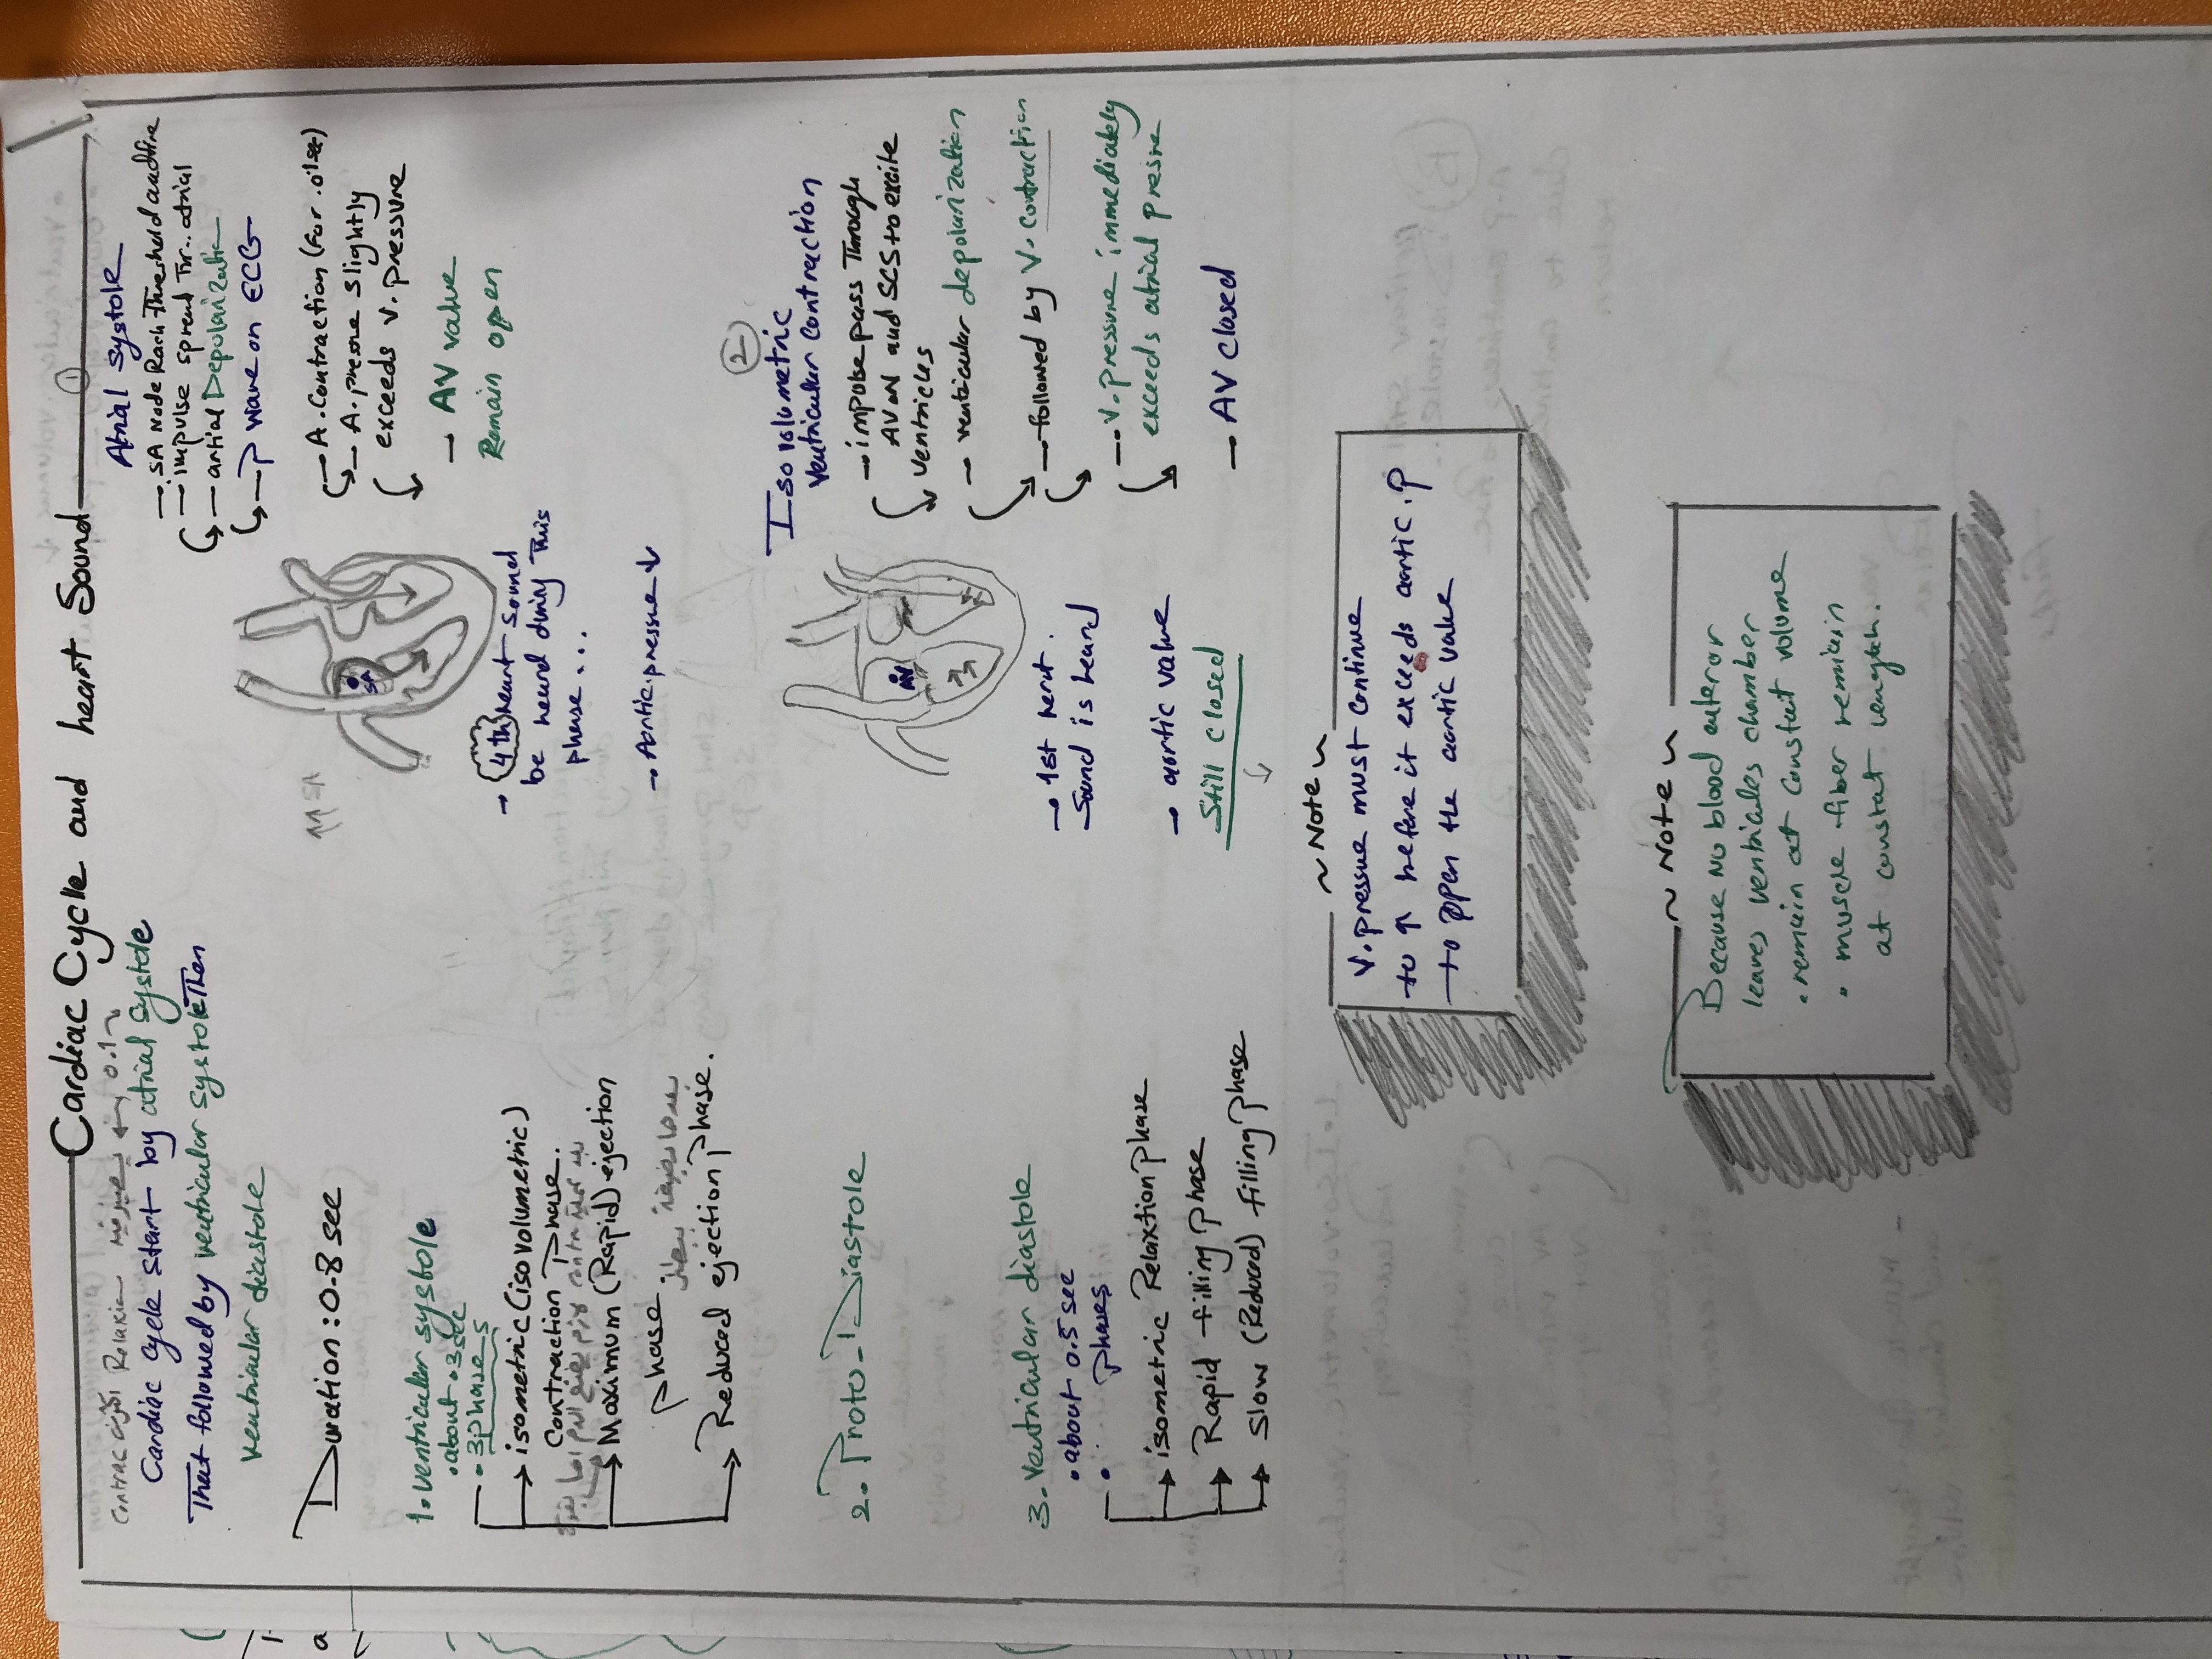 Cardiac Cycle and heart Sound
Contrac Relaxia
0.1
Cardiac cycle start by atrial systole
That followed by ventricular systole Then
ventricular diastole
Duration: 0.8 sec
1. ventricular systole
• about .3 sec
• 3 phases
isometric (isovolumetric)
Contraction Phase.
Maximum (Rapid) ejection
phase
Reduced ejection phase.
2. Proto-Diastole
3. ventricular diastole
• about 0.5 sec
• phases
isometric Relaxtion phase
Rapid filling phase
Slow (Reduced) filling phase
SA
→ 4th heart sound
be heard during This
phase...
→ Aortic.pressure ↓
①
Atrial systole
— SA Node Rach Threshold and fire
— impulse spread Thr.. atrial
— artial Depolarization
→ P wave on ECG
→ A. Contraction (for 0.1 sec)
→ A. presure slightly
exceeds V. pressure
→ AV valve
Remain open
②
Isovolumetric
Ventricular contraction
→ impulse pass Through
AVN and SCS to excite
ventricles
→ ventricular depolarization
→ followed by V. contraction
→ V. pressure immediately
exceeds atrial presure
→ AV closed
→ 1st heart.
Sound is heard
→ aortic valve
Still closed
~ Note ~
V. pressure must continue
to ↑ before it exceeds aortic .P
to open the aortic valve
~ Note ~
Because no blood enter or
leaves ventricles chamber
• remain at constant volume
• muscle fiber remain
at constat length.